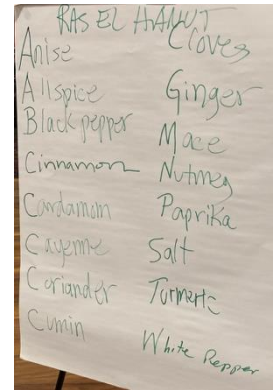 RAS EL HANUT
Anise
Allspice
Black pepper
Cinnamon
Cardamom
Cayenne
Coriander
Cumin
Cloves
Ginger
Mace
Nutmeg
Paprika
Salt
Turmeric
White Pepper